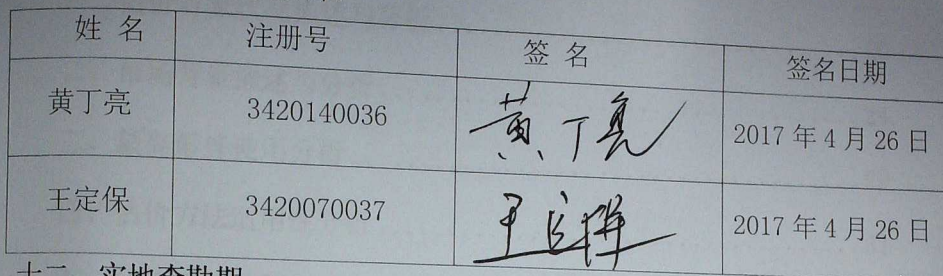 姓 名 注册号 签 名 签名日期
黄丁亮 3420140036 黄丁亮 2017 年 4 月 26 日
王定保 3420070037 王定保 2017 年 4 月 26 日
十二、实地查勘期